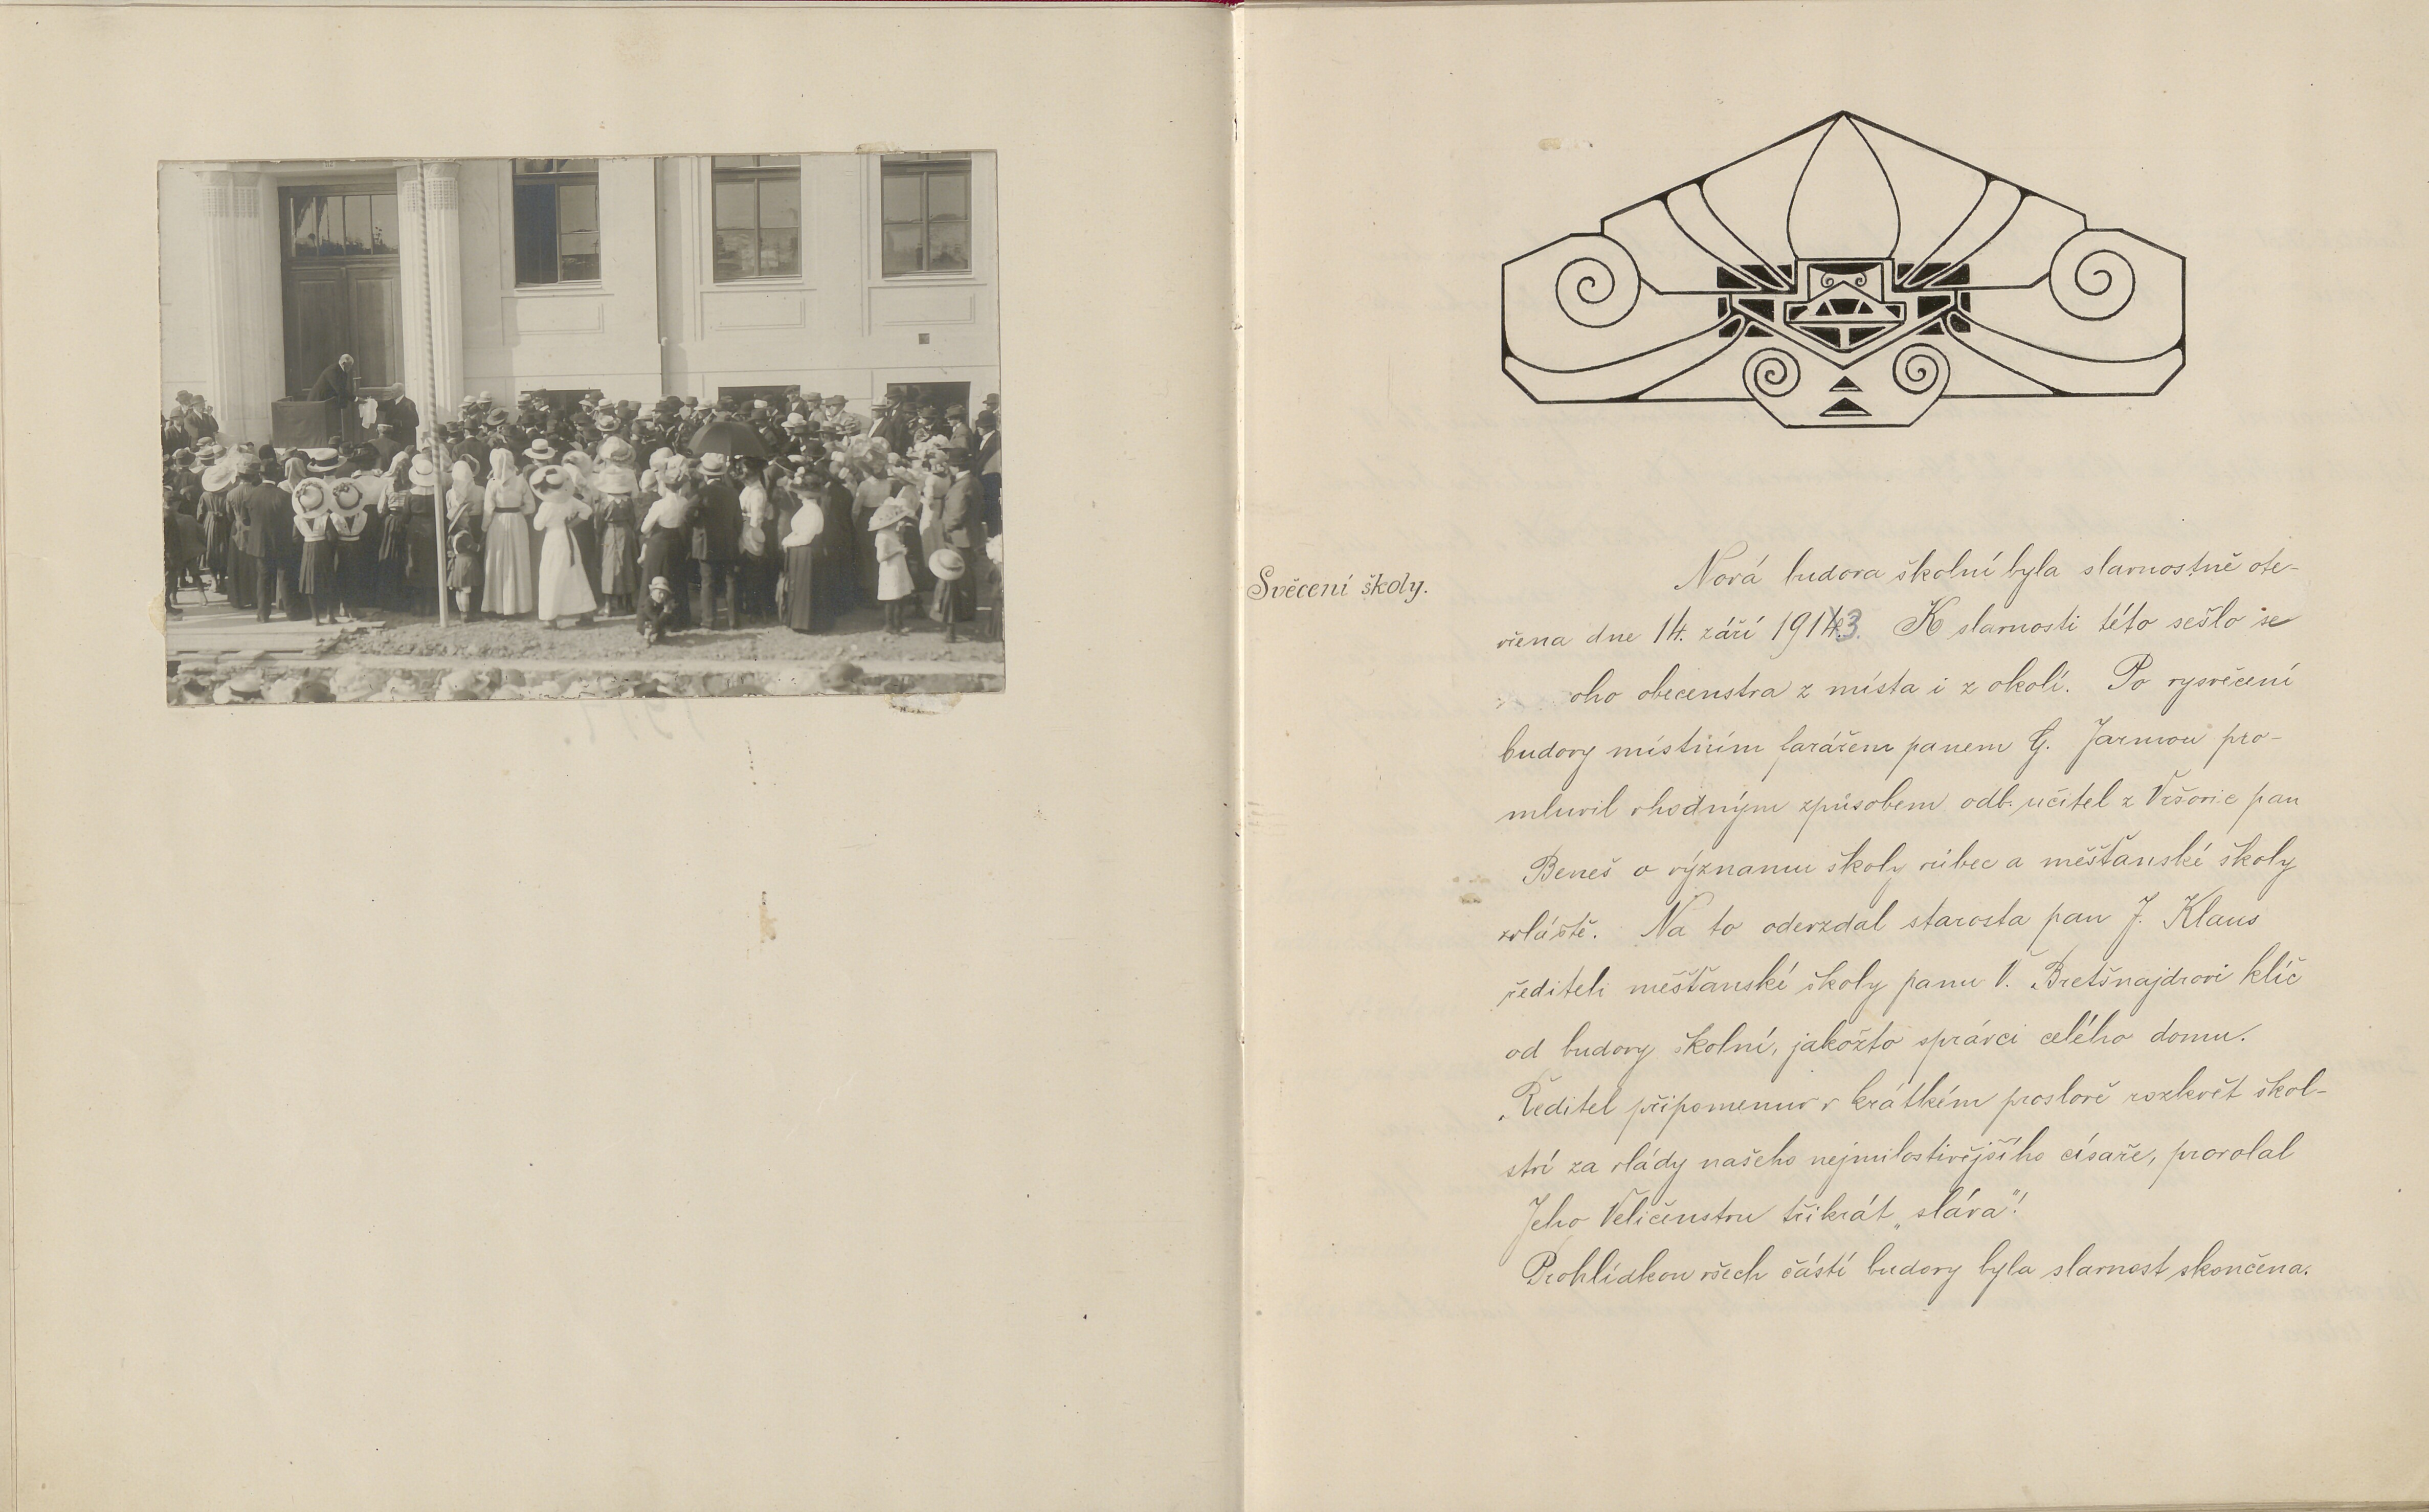 Svěcení školy.
Nová budova školní byla slavnostně ote-
vřena dne 14. září 1913. K slavnosti této sešlo se
oho obecenstva z místa i z okolí. Po vysvěcení
budovy místním farářem panem G. Jarmou pro-
mluvil vhodným způsobem odb. učitel z Vršovic pan
Beneš o významu školy vůbec a měšťanské školy
zvláště. Na to odevzdal starosta pan J. Klaus
řediteli měšťanské školy panu V. Bretšnajdrovi klíč
od budovy školní, jakožto správci celého domu.
Ředitel připomenuv v krátkém proslově rozkvět škol-
ství za vlády našeho nejmilostivějšího císaře, provolal
Jeho Veličenstvu třikrát „sláva"!
Prohlídkou všech částí budovy byla slavnost skončena.